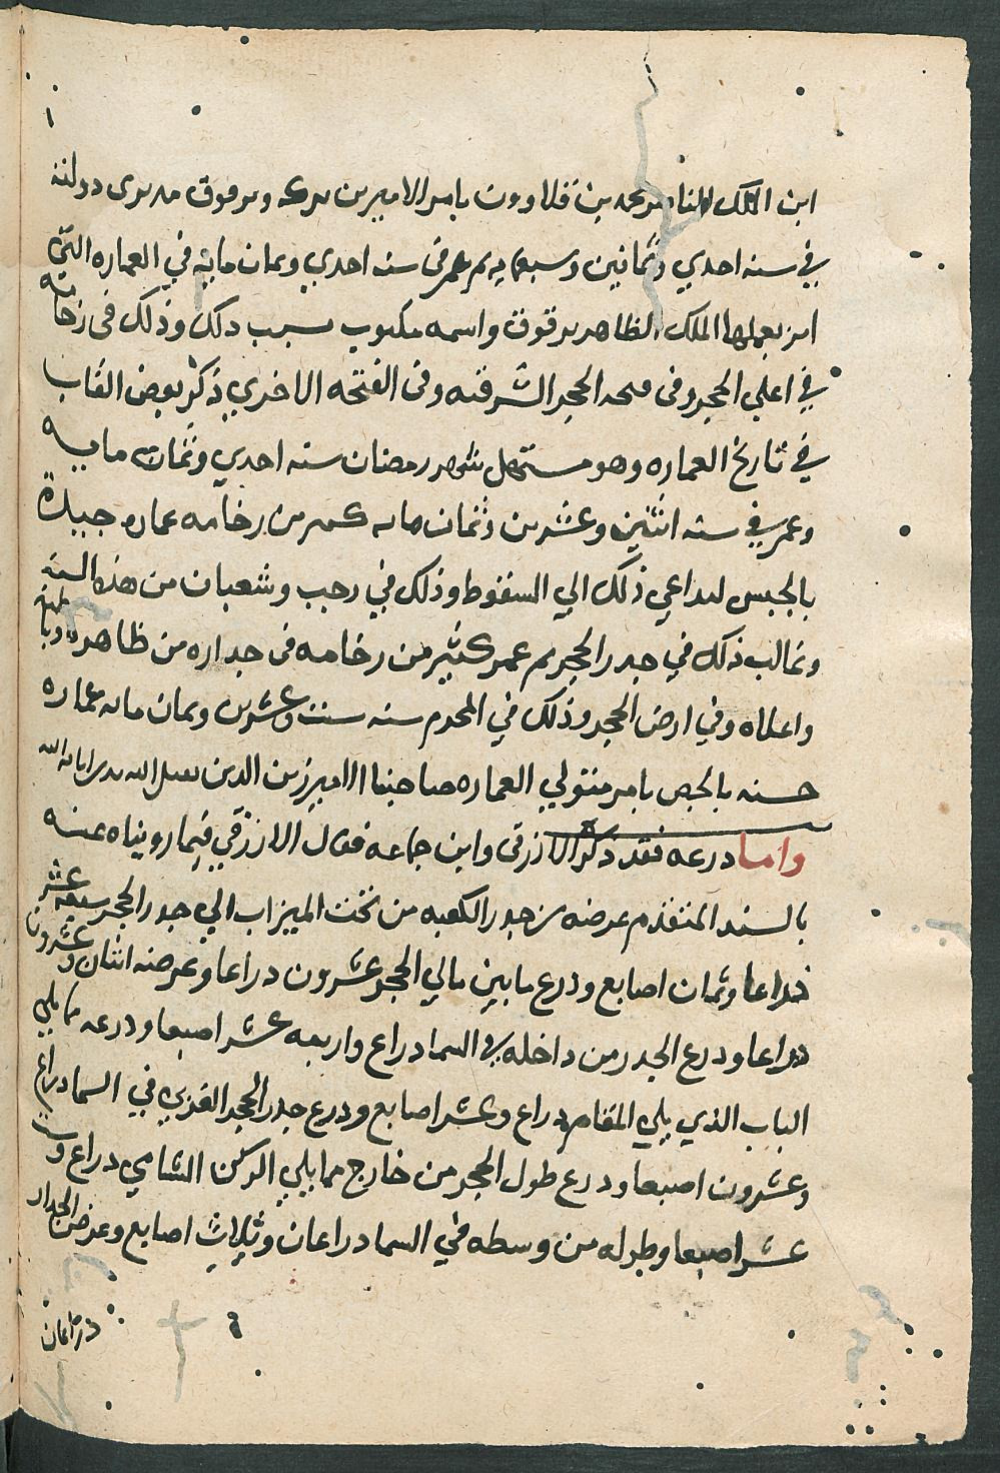 ابن الملك الناصر محمد بن قلاوون بامر الاميرين بركة وبرقوق مدبرى دولته
في سنه احدي وثمانين وسبعمايه ثم عمر في سنه احدي وثمان مايه في العماره التي
امر بعملها الملك الظاهر برقوق واسمه مكتوب بسبب دلك وذلك في رخامه
في اعلي الحجر وفى فتحه الحجر الشرقيه وفى الفتحه الاخري ذكر بعض القاب
في تاريخ العماره وهو مستهل شهر رمضان سنه احدي وثمان مايه
وعمر في سنه اثنتين وعشرين وثمان مايه كثير من رخامه عماره جيدة
بالجبس لتداعي ذلك الي السقوط وذلك في رجب وشعبان من هذه السنه
وغالب ذلك في جدر الحجر ثم عمر كثير من رخامه فى جداره من ظاهره وباطنه
واعلاه وفي ارض الحجر وذلك في المحرم سنه ست وعشرين وثمان مايه عماره
حسنه بالجص بامر متولي العماره صاحبنا الامير زين الدين مقبل القديدى اثابه الله
واما درعه فقد ذكره الازرقى وابن جماعه فقال الازرقي فيما رويناه عنه
بالسند المتقدم عرضه من جدر الكعبه من تحت الميزاب الي جدر الحجر سبعه عشر
ذراعا وثمان اصابع وذرع ما بين بابي الحجر عشرون دراعا وعرضه اثنان وعشرون
دراعا ودرع الجدر من داخله في السما دراع واربعه عشر اصبعا ودرعه مما يلي
الباب الذي يلي المقام دراع وعشر اصابع ودرع جدر الحجر الغربي في السما دراع
وعشرون اصبعا ودرع طول الحجر من خارج مما يلي الركن الشامي دراع وسته
عشر اصبعا وطوله من وسطه في السما دراعان وثلاث اصابع وعرض الجدار
دراعان